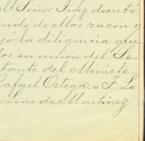 el Señor Juez decretó
ando de ellos razon y
izo la diligencia que
dos en union del Se
tante del Ministe
Rafael Ortega = F. Lo
Leno de Martinez